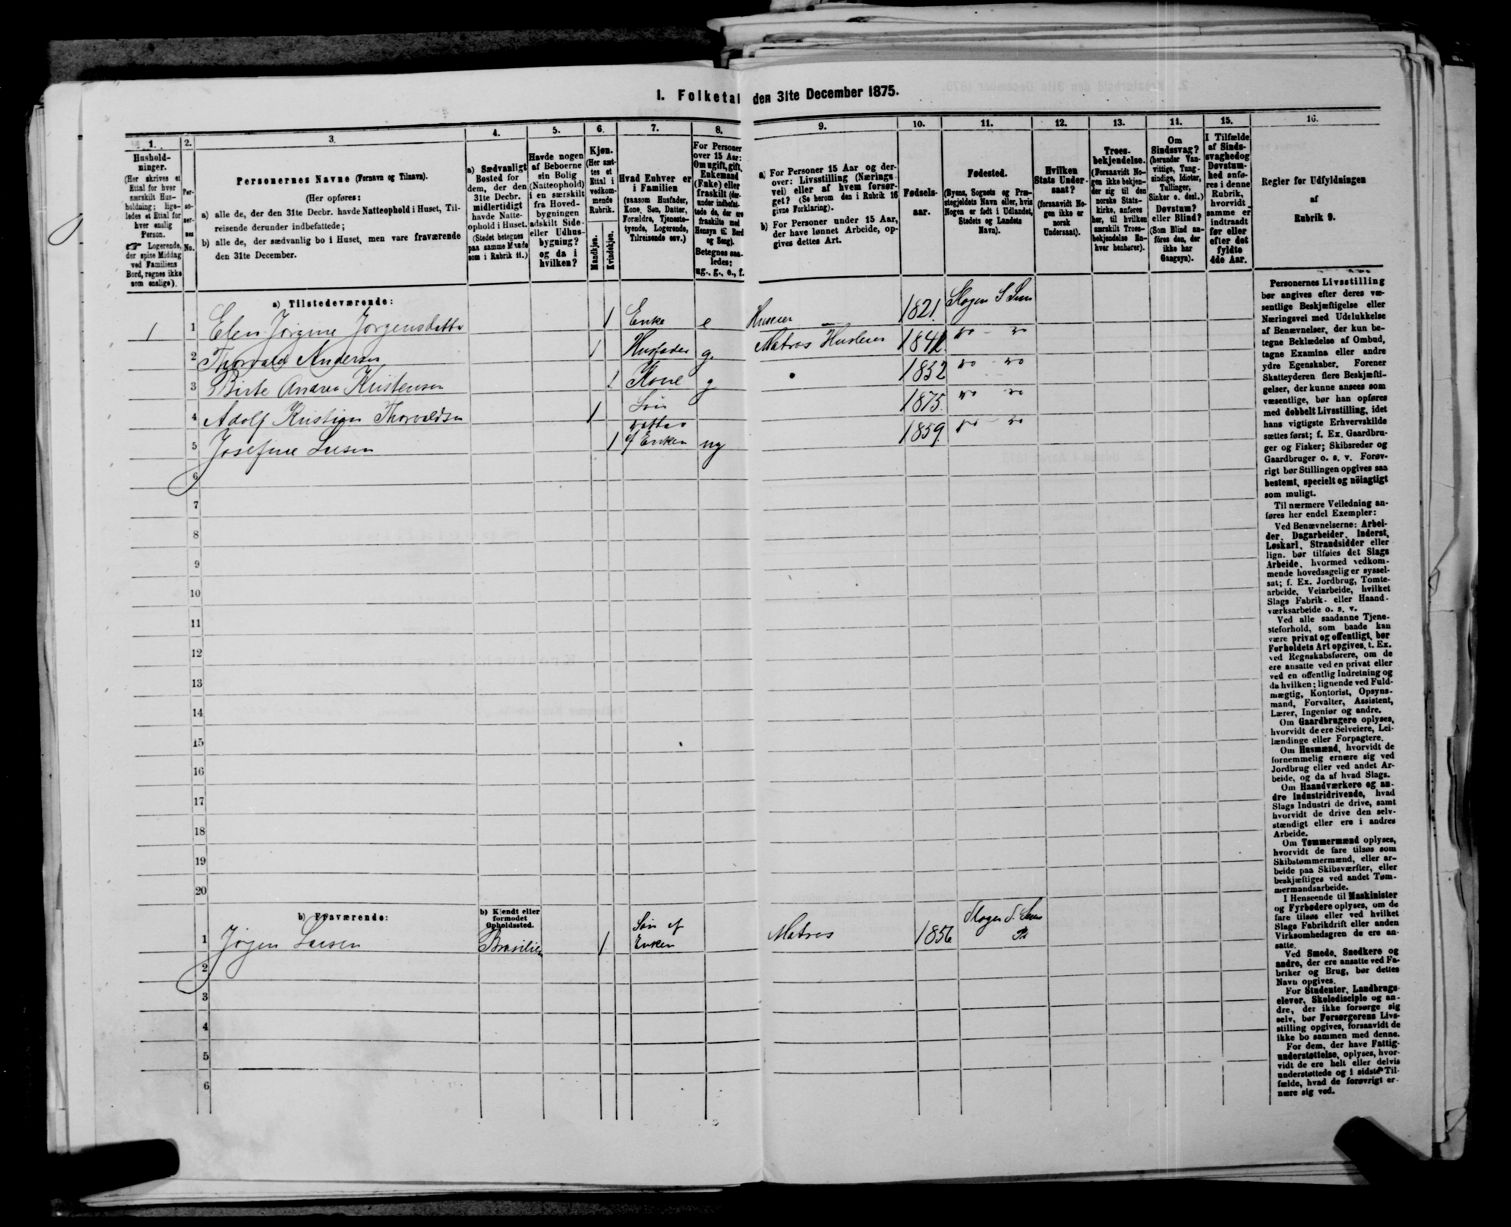 I. Folketal den 31te December 1875.
1.
2.
3.
4.
5.
6.
7.
8.
9.
10.
11.
12.
13.
14.
15.
16.
Husholdninger.
(Her skrives et Ettal for hver særskilt Husholdning; ligeledes et Ettal for hver enslig Person.
☞ Logerende, der spise Middag ved Familiens Bord, regnes ikke som enslige).
Personernes No.
Personernes Navne (Fornavn og Tilnavn).
(Her opføres:
a) alle de, der den 31te Decbr. havde Natteophold i Huset, Tilreisende derunder indbefattede;
b) alle de, der sædvanlig bo i Huset, men vare fraværende den 31te December.
a) Sædvanligt Bosted for dem, der den 31te Decbr. midlertidigt havde Natteophold i Huset. (Stedet betegnes paa samme Maade som i Rubrik 11.)
Havde nogen af Beboerne sin Bolig (Natteophold) i en særskilt fra Hovedbygningen adskilt Side- eller Udhusbygning? og da i hvilken?
Kjøn.
(Her sættes et Ettal i vedkommende Rubrik.
Mandkjøn.
Kvindekjøn.
Hvad Enhver er i Familien
(saasom Husfader, Kone, Søn, Datter, Forældre, Tjenestetyende, Logerende, Tilreisende osv.)
For Personer over 15 Aar: Om ugift, gift, Enkemand (Enke) eller fraskilt (derunder indbefattede de, der ere fraskilte med Hensyn til Bord og Seng).
Betegnes saaledes: ug., g., e., f.
a) For Personer 15 Aar og derover: Livsstilling (Næringsvei) eller af hvem forsørget? (Se herom den i Rubrik 16 givne Forklaring).
b) For Personer under 15 Aar, der have lønnet Arbeide, opgives dettes Art.
Fødselsaar.
Fødested.
(Byens, Sognets og Præstegjeldets Navn eller, hvis Nogen er født i Udlandet, Stedets og Landets Navn).
Hvilken Stats Undersaat?
(forsaavidt Nogen ikke er norsk Undersaat).
Troesbekjendelse.
(Forsaavidt Nogen ikke bekjender sig til den norske Statskirke, anføres her, til hvilken Troesbekjendelse Enhver henhører).
Om Sindssvag? (herunder Vanvittige, Tungsindige, Idioter, Tullinger, Sinker o. desl.) Døvstum? eller Blind? (Som Blind anføres den, der ikke har Gangsyn).
I Tilfælde af Sindssvaghed og Døvstumhed anføres i denne Rubrik, hvorvidt samme er indtraadt før eller efter det fyldte 4de Aar.
Regler før Udfyldningen af Rubrik 9.
a) Tilstedeværende:
1 1 Elen Jørgine Jørgensdatter 1 Enke e Huseier 1821 Slogen S Sem
2 Thorvald Andersen 1 Husfader g. Matros Husleier 1841 do do
3 Birte Andrea Kristensen 1 Kone g 1852 do do
4 Adolf Kristian Thorvaldsen 1 Søn 1875. do do
5 Josefine Larsen 1 Datter af Enken ug 1859. do do
6
7
8
9
10
11
12
13
14
15
16
17
18
19
20
b) Fraværende:
b) Kjendt eller formodet Opholdssted.
1 Jørgen Larsen Brasilien 1 Søn af Enken Matros 1856 Slogen S. Sem P.
2
3
4
5
6
Personernes Livsstilling
bør angives efter deres væ-
sentlige Beskjæftigelse eller
Næringsvei med Udelukkelse
af Benævnelser, der kun be-
tegne Beklædelse af Ombud,
tagne Examina eller andre
ydre Egenskaber. Forener
Skatteyderen flere Beskjæfti-
gelser, der kunne ansees som
væsentlige, bør han opføres
med dobbelt Livsstilling, idet
hans vigtigste Erhvervskilde
sættes først; f. Ex. Gaardbru-
ger og Fisker; Skibsreder og
Gaardbruger o. s. v. Forøv-
rigt bør Stillingen opgives saa
bestemt, specielt og nöiagtigt
som muligt.
Til nærmere Veiledning an-
føres her endel Exempler:
Ved Benævnelserne: Arbei-
der, Dagarbeider, Inderst,
Løskarl, Strandsidder eller
lign. bør tilføies det Slags
Arbeide, hvormed vedkom-
mende hovedsagelig er syssel-
sat; f. Ex. Jordbrug, Tomte-
arbeide, Veiarbeide, hvilket
Slags Fabrik- eller Haand-
værksarbeide o. s. v.
Ved alle saadanne Tjene-
steforhold, som baade kan
være privat og offentligt, bør
Forholdets Art opgives, t. Ex.
ved Regnskabsførere, om de
ere ansatte ved en privat eller
ved en offentlig Indretning og
da hvilken; lignende ved Fuld-
mægtig, Kontorist, Opsyns-
mand, Forvalter, Assistent,
Lærer, Ingeniør og andre.
Om Gaardbrugere oplyses,
hvorvidt de ere Selveiere, Lei-
lændinge eller Forpagtere.
Om Husmænd, hvorvidt de
fornemmelig ernære sig ved
Jordbrug eller ved andet Ar-
beide, og da af hvad Slags.
Om Haandværkere og an-
dre Industridrivende, hvad
Slags Industri de drive, samt
hvorvidt de drive den selv-
stændigt eller ere i andres
Arbeide.
Om Tømmermænd oplyses,
hvorvidt de fare tilsøs som
Skibstømmermænd, eller ar-
beide paa Skibsværfter, eller
beskjæftiges ved andet Tøm-
mermandsarbeide.
I Henseende til Maskinister
og Fyrbødere oplyses, om de
fare tilsøs eller ved hvilket
Slags Fabrikdrift eller anden
Virksomhedsgren de ere an-
satte.
Ved Smede, Snedkere og
andre, der ere ansatte ved Fa-
briker og Brug, bør dettes
Navn opgives.
For Studenter, Landbrugs-
elever, Skoledisciple og an-
dre, der ikke forsørge sig
selv, bør Forsørgerens Livs-
stilling opgives, forsaavidt de
ikke bo sammen med denne.
For dem, der have Fattig-
understøttelse, oplyses, hvor-
vidt de ere helt eller delvis
understøttede og i sidste Til-
fælde, hvad de forøvrigt er-
nære sig ved.